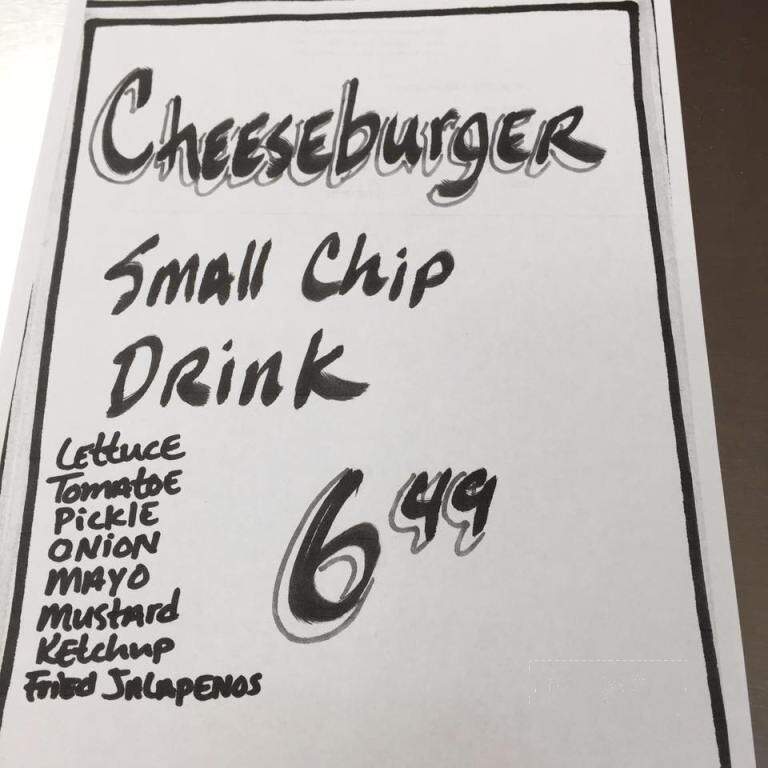 CHEESEburgER
Small Chip
DRink
LETTUCE
TOMATOE
PiCKlE
ONiON
MAYO
Mustard
KEtchup
Fried JAlapENOS
6 49